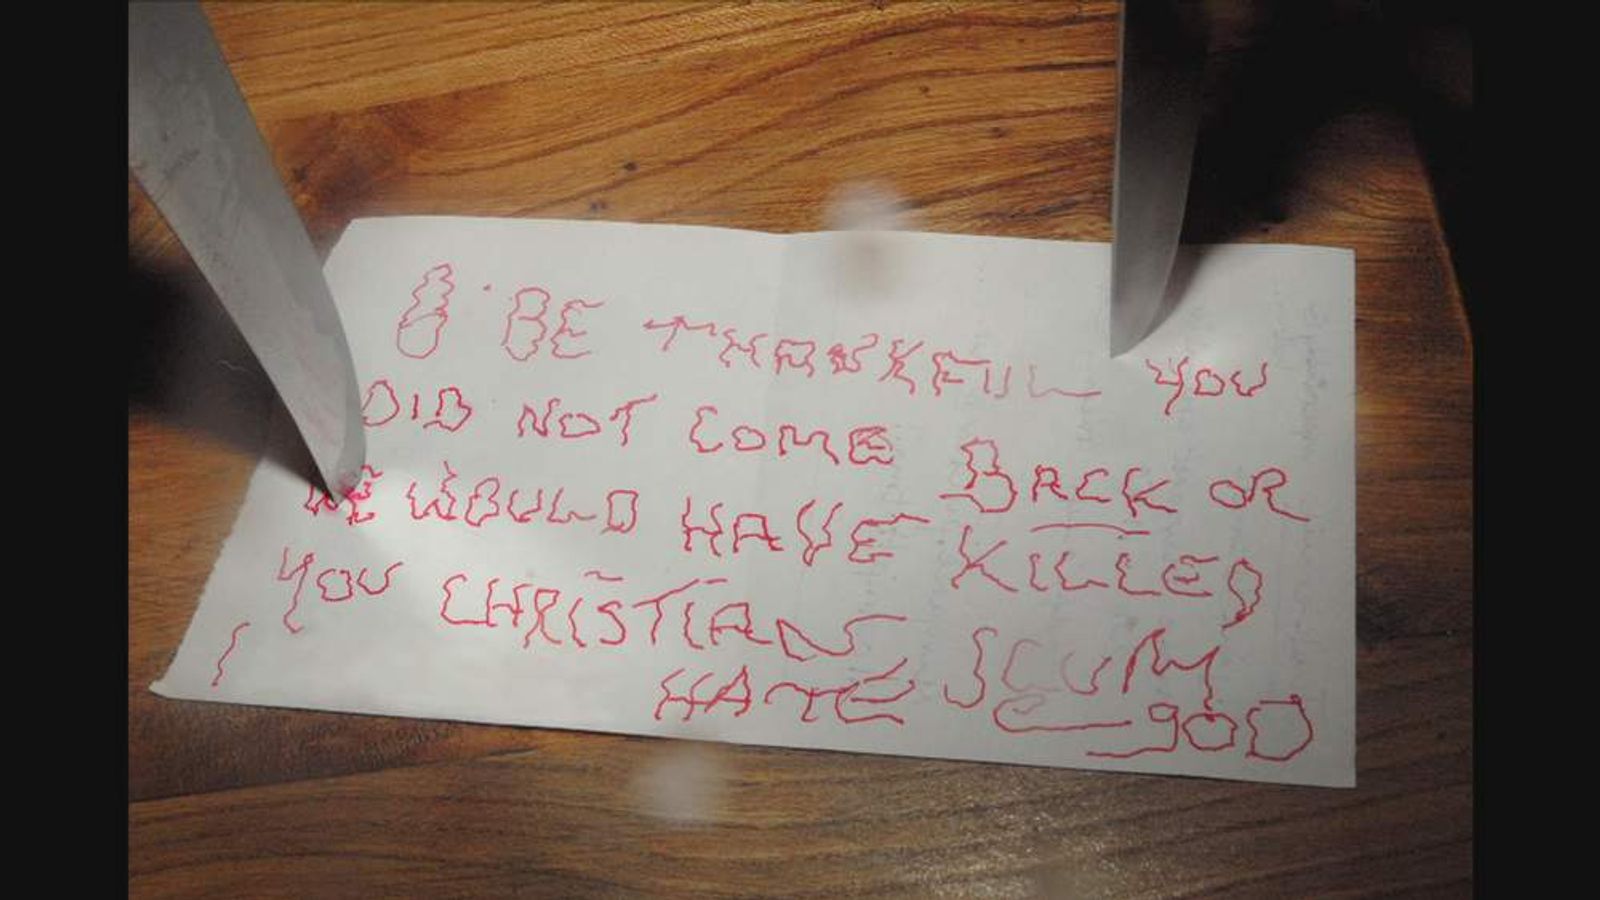 BE THANKFUL YOU
DID NOT COME BACK OR
WE WOULD HAVE KILLED
YOU CHRISTIAN SCUM
I HATE GOD